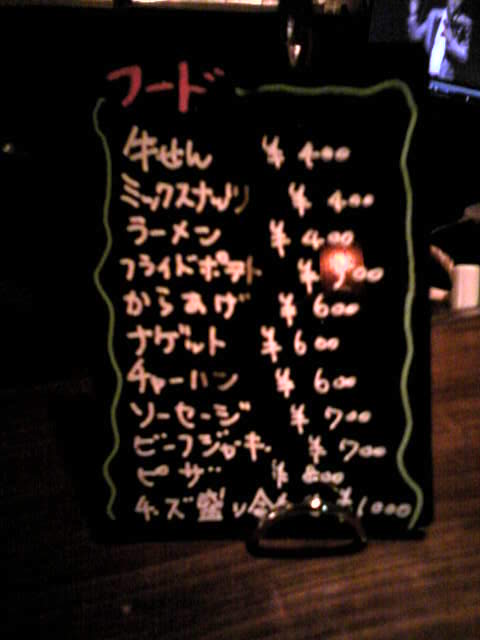 フード
牛せん ¥400
ミックスナッツ ¥400
ラーメン ¥400
フライドポテト ¥500
からあげ ¥600
ナゲット ¥600
チャーハン ¥600
ソーセージ ¥700
ビーフジャーキー ¥700
ピザ ¥800
チーズ盛り合 ¥1000